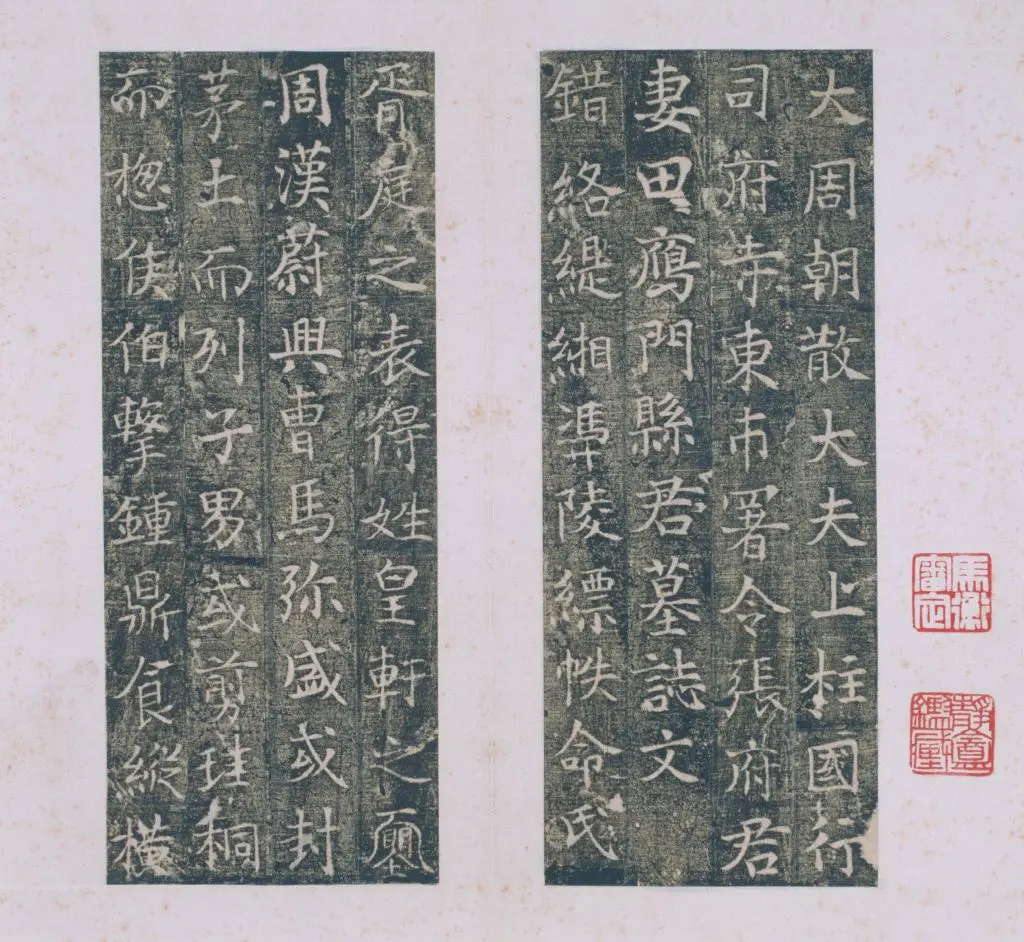 大周朝散大夫上柱國行
司府寺東市署令張府君
妻田鴈門縣君墓誌文
錯絡緹緗馮陵縹帙命氏
胥庭之表得姓皇軒之
周漢蔚興曹馬弥盛或封
茅土而列子男或剪珪桐
而揔侯伯擊鍾鼎食縱橫
馬衡
審定